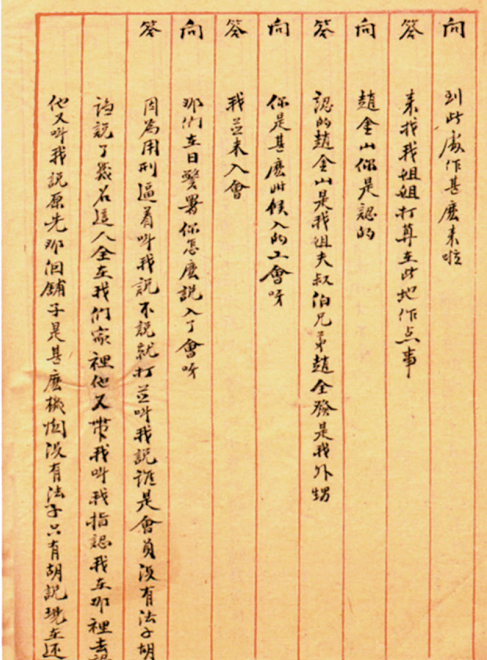 問 到此處作甚麼來啦
答 來找我姐姐打算在此地作点事
問 趙金山你是認的
答 認的趙金山是我姐夫叔伯兄弟趙全發是我外甥
問 你是甚麼時候入的工會呀
答 我並未入會
問 那們在日警署你怎麼說入了會呀
答 因為用刑逼着叫我說不說就打並叫我說誰是會員沒有法子胡
說了幾名這人全在我們家裡他又帶我叫我指認我在那裡去
他又叫我說原先那個舖子是甚麼機関沒有法子只有胡說現在还